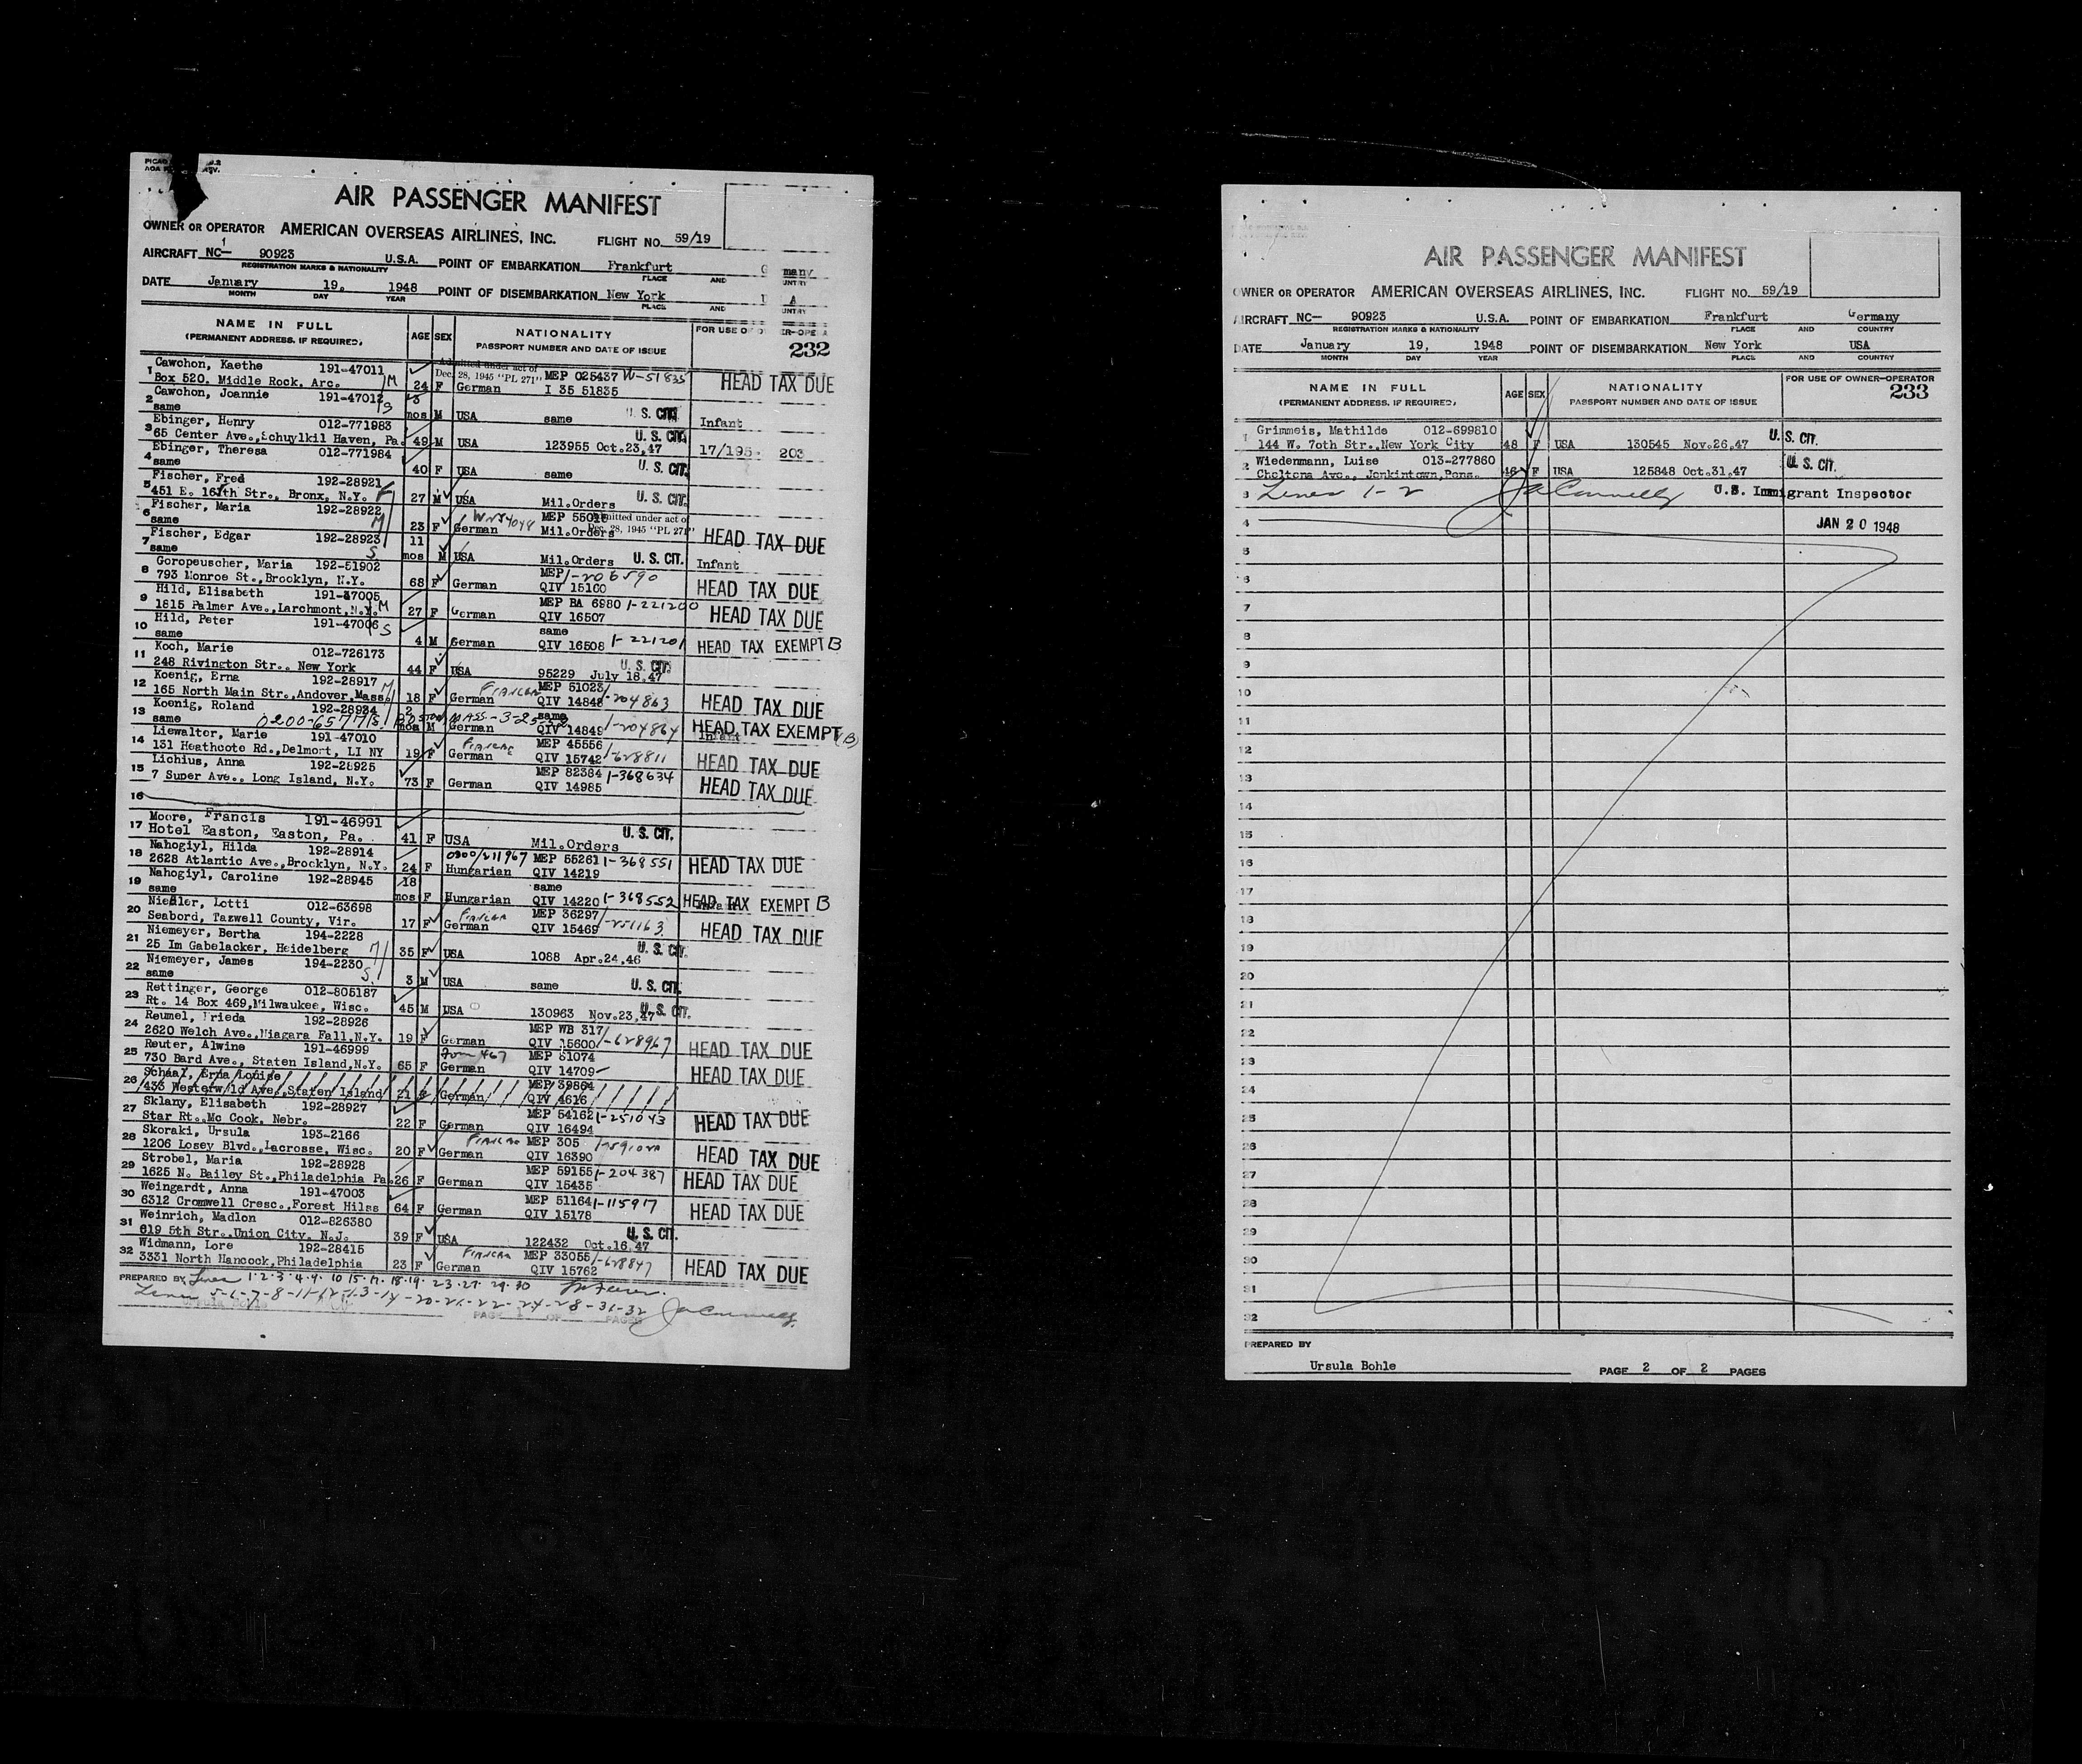 AIR PASSENGER MANIFEST
OWNER OR OPERATOR AMERICAN OVERSEAS AIRLINES, INC. FLIGHT NO. 59/19
AIRCRAFT NC— 90923 U.S.A. POINT OF EMBARKATION Frankfurt
REGISTRATION MARKS & NATIONALITY PLACE AND
DATE January 19, 1948 POINT OF DISEMBARKATION New York
MONTH DAY YEAR PLACE AND
NAME IN FULL AGE SEX NATIONALITY
(PERMANENT ADDRESS, IF REQUIRED) PASSPORT NUMBER AND DATE OF ISSUE
232
1 Cawchon, Kaethe 191-47011 Dec. 28, 1945 "PL 271" MEP 025437 W-51835 HEAD TAX DUE
Box 520, Middle Rock, Arc. M 24 F German I 35 51835
2 Cawchon, Joannie 191-47012 S U. S. CIT.
same mos M USA same Infant
3 Ebinger, Henry 012-771983 U. S. CIT.
65 Center Ave., Schuylkil Haven, Pa. 49 M USA 123955 Oct.23,47
4 Ebinger, Theresa 012-771984 U. S. CIT.
same 40 F USA same
5 Fischer, Fred 192-28921 U. S. CIT.
451 E. 167th Str., Bronx, N.Y. 27 M USA Mil.Orders
6 Fischer, Maria 192-28922 Dec. 28, 1945 "PL 271" HEAD TAX DUE
same M 23 F German Mil.Orders
7 Fischer, Edgar 192-28923 11 U. S. CIT.
same S mos M USA Mil.Orders Infant
8 Goropeuscher, Maria 192-51902 MEP 1-206590
793 Monroe St., Brooklyn, N.Y. 68 F German QIV 15100 HEAD TAX DUE
9 Hild, Elisabeth 191-37005 MEP BA 6980 1-221200
1815 Palmer Ave., Larchmont, N.Y. M 27 F German QIV 16507 HEAD TAX DUE
10 Hild, Peter 191-47006 S same
same 4 M German QIV 16508 1-221201 HEAD TAX EXEMPT B
11 Koch, Marie 012-726173 U. S. CIT.
248 Rivington Str., New York 44 F USA 95229 July 18,47
12 Koenig, Erna 192-28917 MEP 51023
165 North Main Str., Andover, Mass. 18 F German QIV 14848 1-204863 HEAD TAX DUE
13 Koenig, Roland 192-28934 2 same
same mos M German QIV 14849 1-204864 HEAD TAX EXEMPT (B)
14 Liewalter, Marie 191-47010 MEP 45556
131 Heathcote Rd., Delmort, LI NY 19 F German QIV 15742 1-628811 HEAD TAX DUE
15 Lichius, Anna 192-28925 MEP 82384 1-368634
7 Super Ave., Long Island, N.Y. 73 F German QIV 14985 HEAD TAX DUE
16
17 Moore, Francis 191-46991 U. S. CIT.
Hotel Easton, Easton, Pa. 41 F USA Mil.Orders
18 Nahogiyl, Hilda 192-28914 0300/211967 MEP 55261 1-368551
2628 Atlantic Ave., Brooklyn, N.Y. 24 F Hungarian QIV 14219 HEAD TAX DUE
19 Nahogiyl, Caroline 192-28945 18 same
same mos F Hungarian QIV 14220 1-368552 HEAD TAX EXEMPT B
20 Niedler, Lotti 012-63698 MEP 36297
Seabord, Tazwell County, Vir. 17 F German QIV 15469 1-251163 HEAD TAX DUE
21 Niemeyer, Bertha 194-2228 U. S. CIT.
25 Im Gabelacker, Heidelberg M 35 F USA 1088 Apr.24,46
22 Niemeyer, James 194-2230 S U. S. CIT.
same 3 M USA same
23 Rettinger, George 012-805187 U. S. CIT.
Rt. 14 Box 469, Milwaukee, Wisc. 45 M USA 130963 Nov.23,47
24 Reumel, Frieda 192-28926 MEP WB 317
2620 Welch Ave., Niagara Fall, N.Y. 19 F German QIV 15600 1-628967 HEAD TAX DUE
25 Reuter, Alwine 191-46999 MEP 81074
730 Bard Ave., Staten Island, N.Y. 65 F German QIV 14709 HEAD TAX DUE
26 Schaal, Erna Louise MEP 39864
433 Westerwild Ave., Staten Island 21 German QIV 4616
27 Sklany, Elisabeth 192-28927 MEP 54162 1-251043
Star Rt., Mc Cook, Nebr. 22 F German QIV 16494 HEAD TAX DUE
28 Skoraki, Ursula 193-2166 MEP 305
1206 Losey Blvd., Lacrosse, Wisc. 20 F German QIV 16390 HEAD TAX DUE
29 Strobel, Maria 192-28928 MEP 59155 1-204387
1625 N. Bailey St., Philadelphia Pa. 26 F German QIV 15435 HEAD TAX DUE
30 Weingardt, Anna 191-47003 MEP 51164 1-115917
6312 Cromwell Cresc., Forest Hilss 64 F German QIV 15178 HEAD TAX DUE
31 Weinrich, Madlon 012-826380 U. S. CIT.
619 5th Str., Union City, N.J. 39 F USA 122432 Oct.16,47
32 Widmann, Lore 192-28415 MEP 33055
3331 North Hancock, Philadelphia 23 F German QIV 15762 1-628847 HEAD TAX DUE
PREPARED BY Lines 1·2·3·4·9·10·15·17·18·19·23·27·29·30
Lines 5-6-7-8-11-12-13-14-20-21-22-24-28-31-32
Ursula Bohle PAGE 1 OF PAGES
AIR PASSENGER MANIFEST
OWNER OR OPERATOR AMERICAN OVERSEAS AIRLINES, INC. FLIGHT NO. 59/19
AIRCRAFT NC— 90923 U.S.A. POINT OF EMBARKATION Frankfurt Germany
REGISTRATION MARKS & NATIONALITY PLACE AND COUNTRY
DATE January 19, 1948 POINT OF DISEMBARKATION New York USA
MONTH DAY YEAR PLACE AND COUNTRY
NAME IN FULL AGE SEX NATIONALITY FOR USE OF OWNER-OPERATOR
(PERMANENT ADDRESS, IF REQUIRED) PASSPORT NUMBER AND DATE OF ISSUE 233
1 Grimmeis, Mathilde 012-699810 U. S. CIT.
144 W. 70th Str., New York City 48 F USA 130545 Nov.26.47
2 Wiedenmann, Luise 013-277860 U. S. CIT.
Cheltona Ave., Jenkintown, Penn. F USA 125848 Oct.31.47
3 Lines 1-2 U.S. Immigrant Inspector
4 JAN 20 1948
5
6
7
8
9
10
11
12
13
14
15
16
17
18
19
20
21
22
23
24
25
26
27
28
29
30
31
32
PREPARED BY
Ursula Bohle PAGE 2 OF 2 PAGES